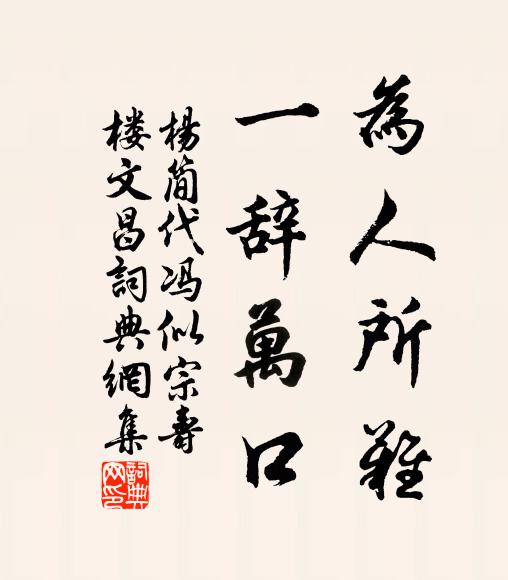 為人所難
一辞萬口
楊簡代冯似宗壽
楼文昌詞典網集
詞典网印